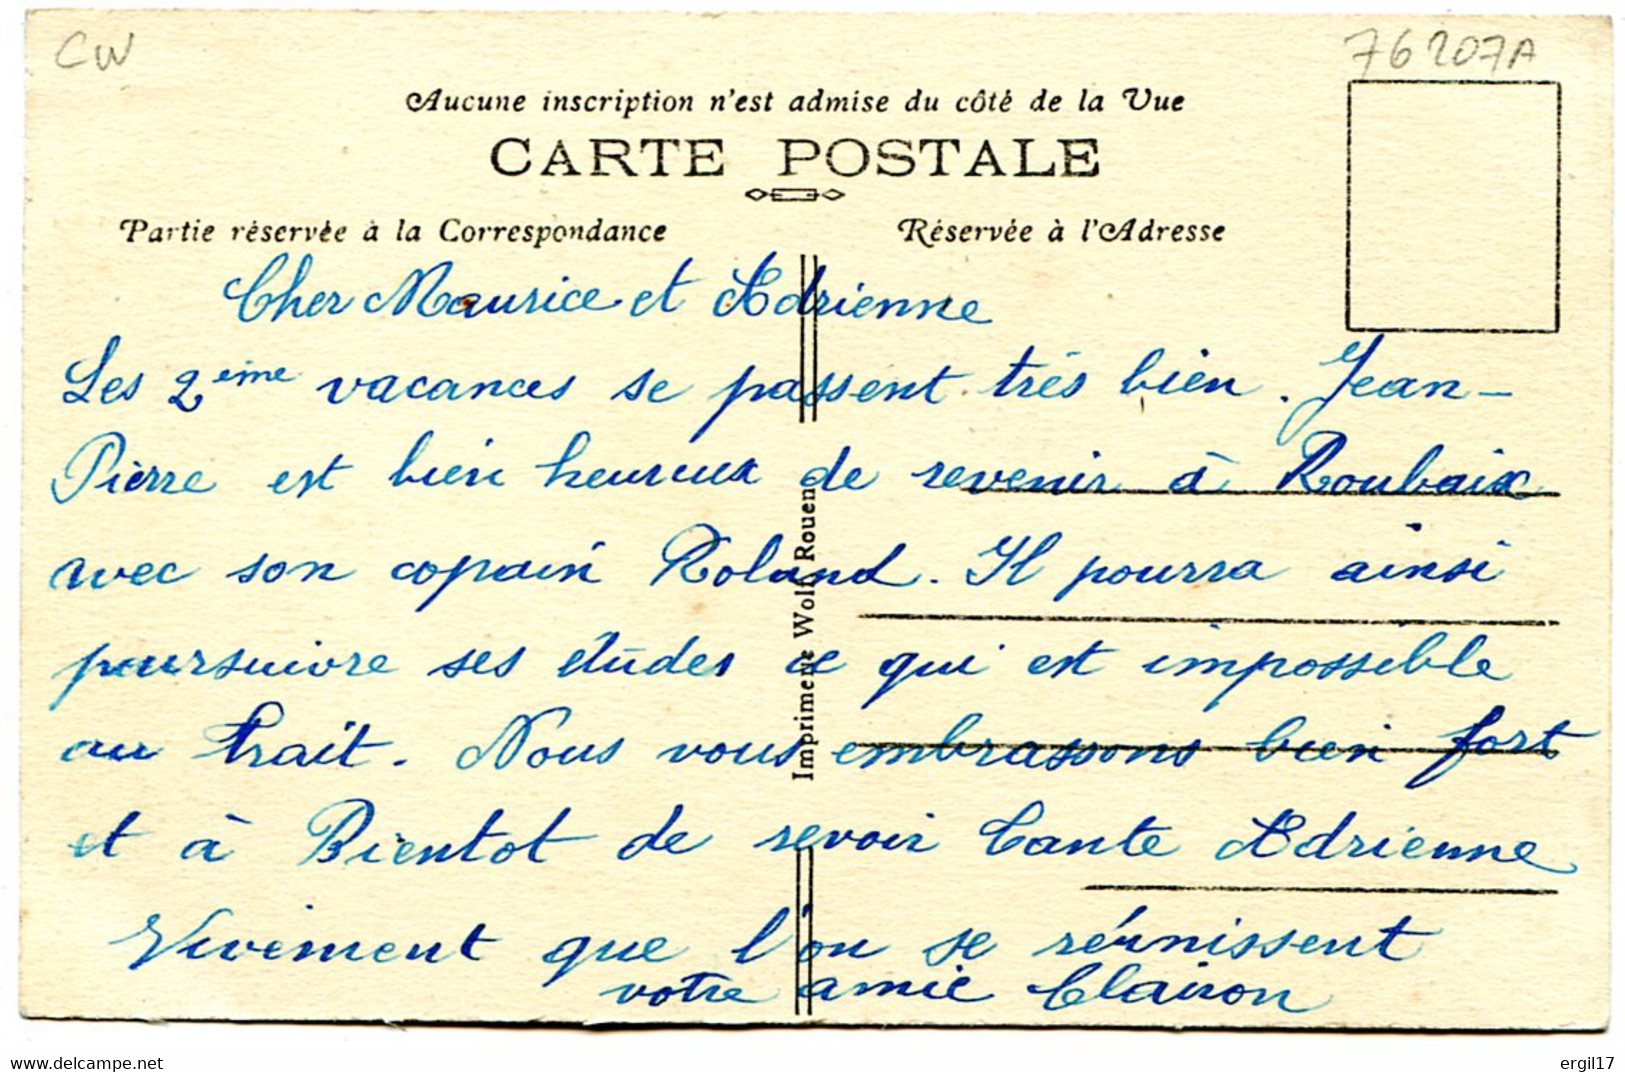 CW
76207A
Aucune inscription n'est admise du côté de la Vue
CARTE POSTALE
Partie réservée à la Correspondance
Réservée à l'Adresse
Cher Maurice et Adrienne
Les 2ème vacances se passent très bien. Jean-
Pierre est bien heureux de revenir à Roubaix
avec son copain Roland. Il pourra ainsi
poursuivre ses études ce qui est impossible
au Trait. Nous vous embrassons bien fort
et à Bientot de revoir Tante Adrienne
Vivement que l'on se réunissent
votre amie Clairon
Imprimerie Wolf, Rouen
www.delcampe.net
ergil17